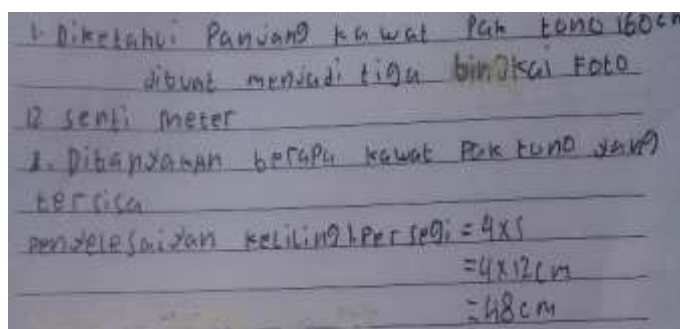 1. Diketahui Panjang kawat Pak tono 160 cm
dibuat menjadi tiga bingkai Foto
12 senti meter
2. Ditanyakan berapa kawat Pak tono yang
tersisa
penyelesaiyan keliling 1 Persegi = 4xs
=4x12cm
=48cm